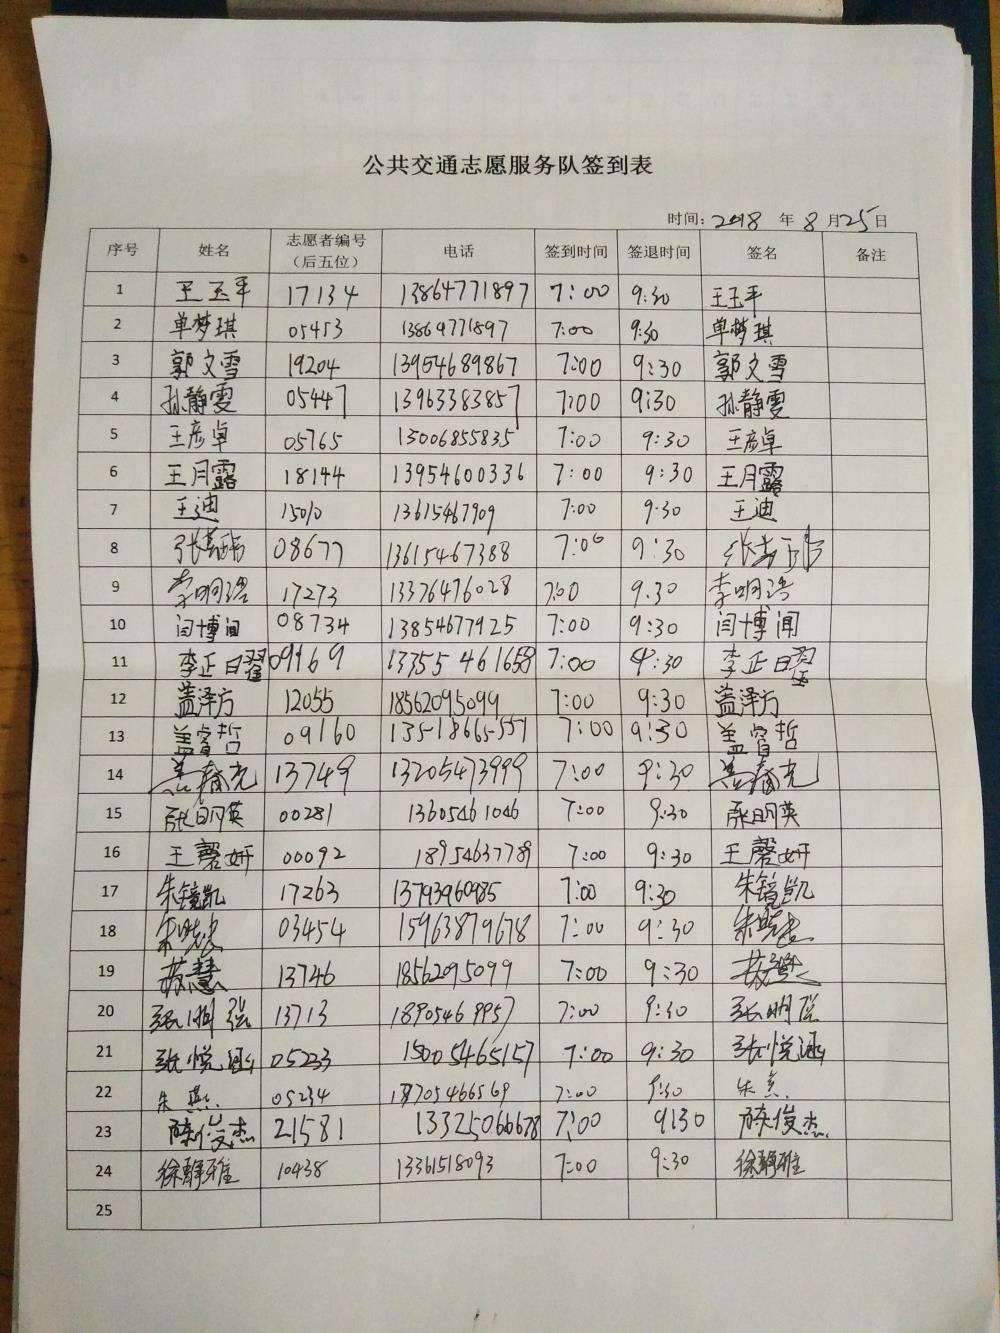 公共交通志愿服务队签到表
时间：2018 年 8 月 25 日
序号 姓名 志愿者编号（后五位） 电话 签到时间 签退时间 签名 备注
1 王玉平 17134 13864771897 7:00 9:30 王玉平
2 单梦琪 05453 13869771897 7:00 9:30 单梦琪
3 郭文雪 19204 13954689867 7:00 9:30 郭文雪
4 孙静雯 05447 13963383857 7:00 9:30 孙静雯
5 王彦卓 05765 15006855835 7:00 9:30 王彦卓
6 王月露 18144 13954600336 7:00 9:30 王月露
7 王迪 15010 13615467909 7:00 9:30 王迪
8 08677 13615467388 7:00 9:30
9 李明浩 17273 13376476028 7:00 9.30 李明浩
10 闫博闻 08734 13854677925 7:00 9:30 闫博闻
11 李正曜 09169 13355 461658 7:00 9:30 李正曜
12 盖泽方 12055 18562095099 7:00 9:30 盖泽方
13 盖睿哲 09160 13518665557 7:00 9:30 盖睿哲
14 盖春光 13749 13205473999 7:00 9:30 盖春光
15 00281 13605461046 7:00 9:30
16 王馨妍 00092 18954637789 7:00 9:30 王馨妍
17 朱镜凯 17263 13793960985 7:00 9:30 朱镜凯
18 03454 15963879678 7:00 9:30
19 苏慧 13746 18562095099 7:00 9:30
20 13713 7:00 9:30
21 张悦涵 05233 15005465157 7:00 9:30 张悦涵
22 朱燕 05234 18705466569 7:00 9:30 朱燕
23 陈俊杰 21581 13325066678 7:00 9:30 陈俊杰
24 徐静雅 10438 13361518093 7:00 9:30 徐静雅
25